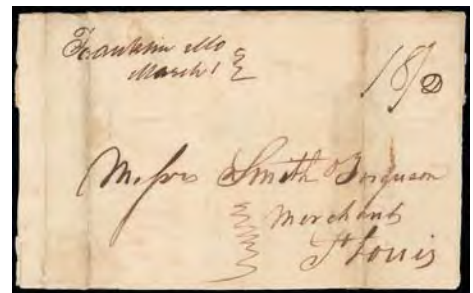 Franklin Mo
March 1
18/
Messrs Smith & Ferguson
Merchants
St Louis